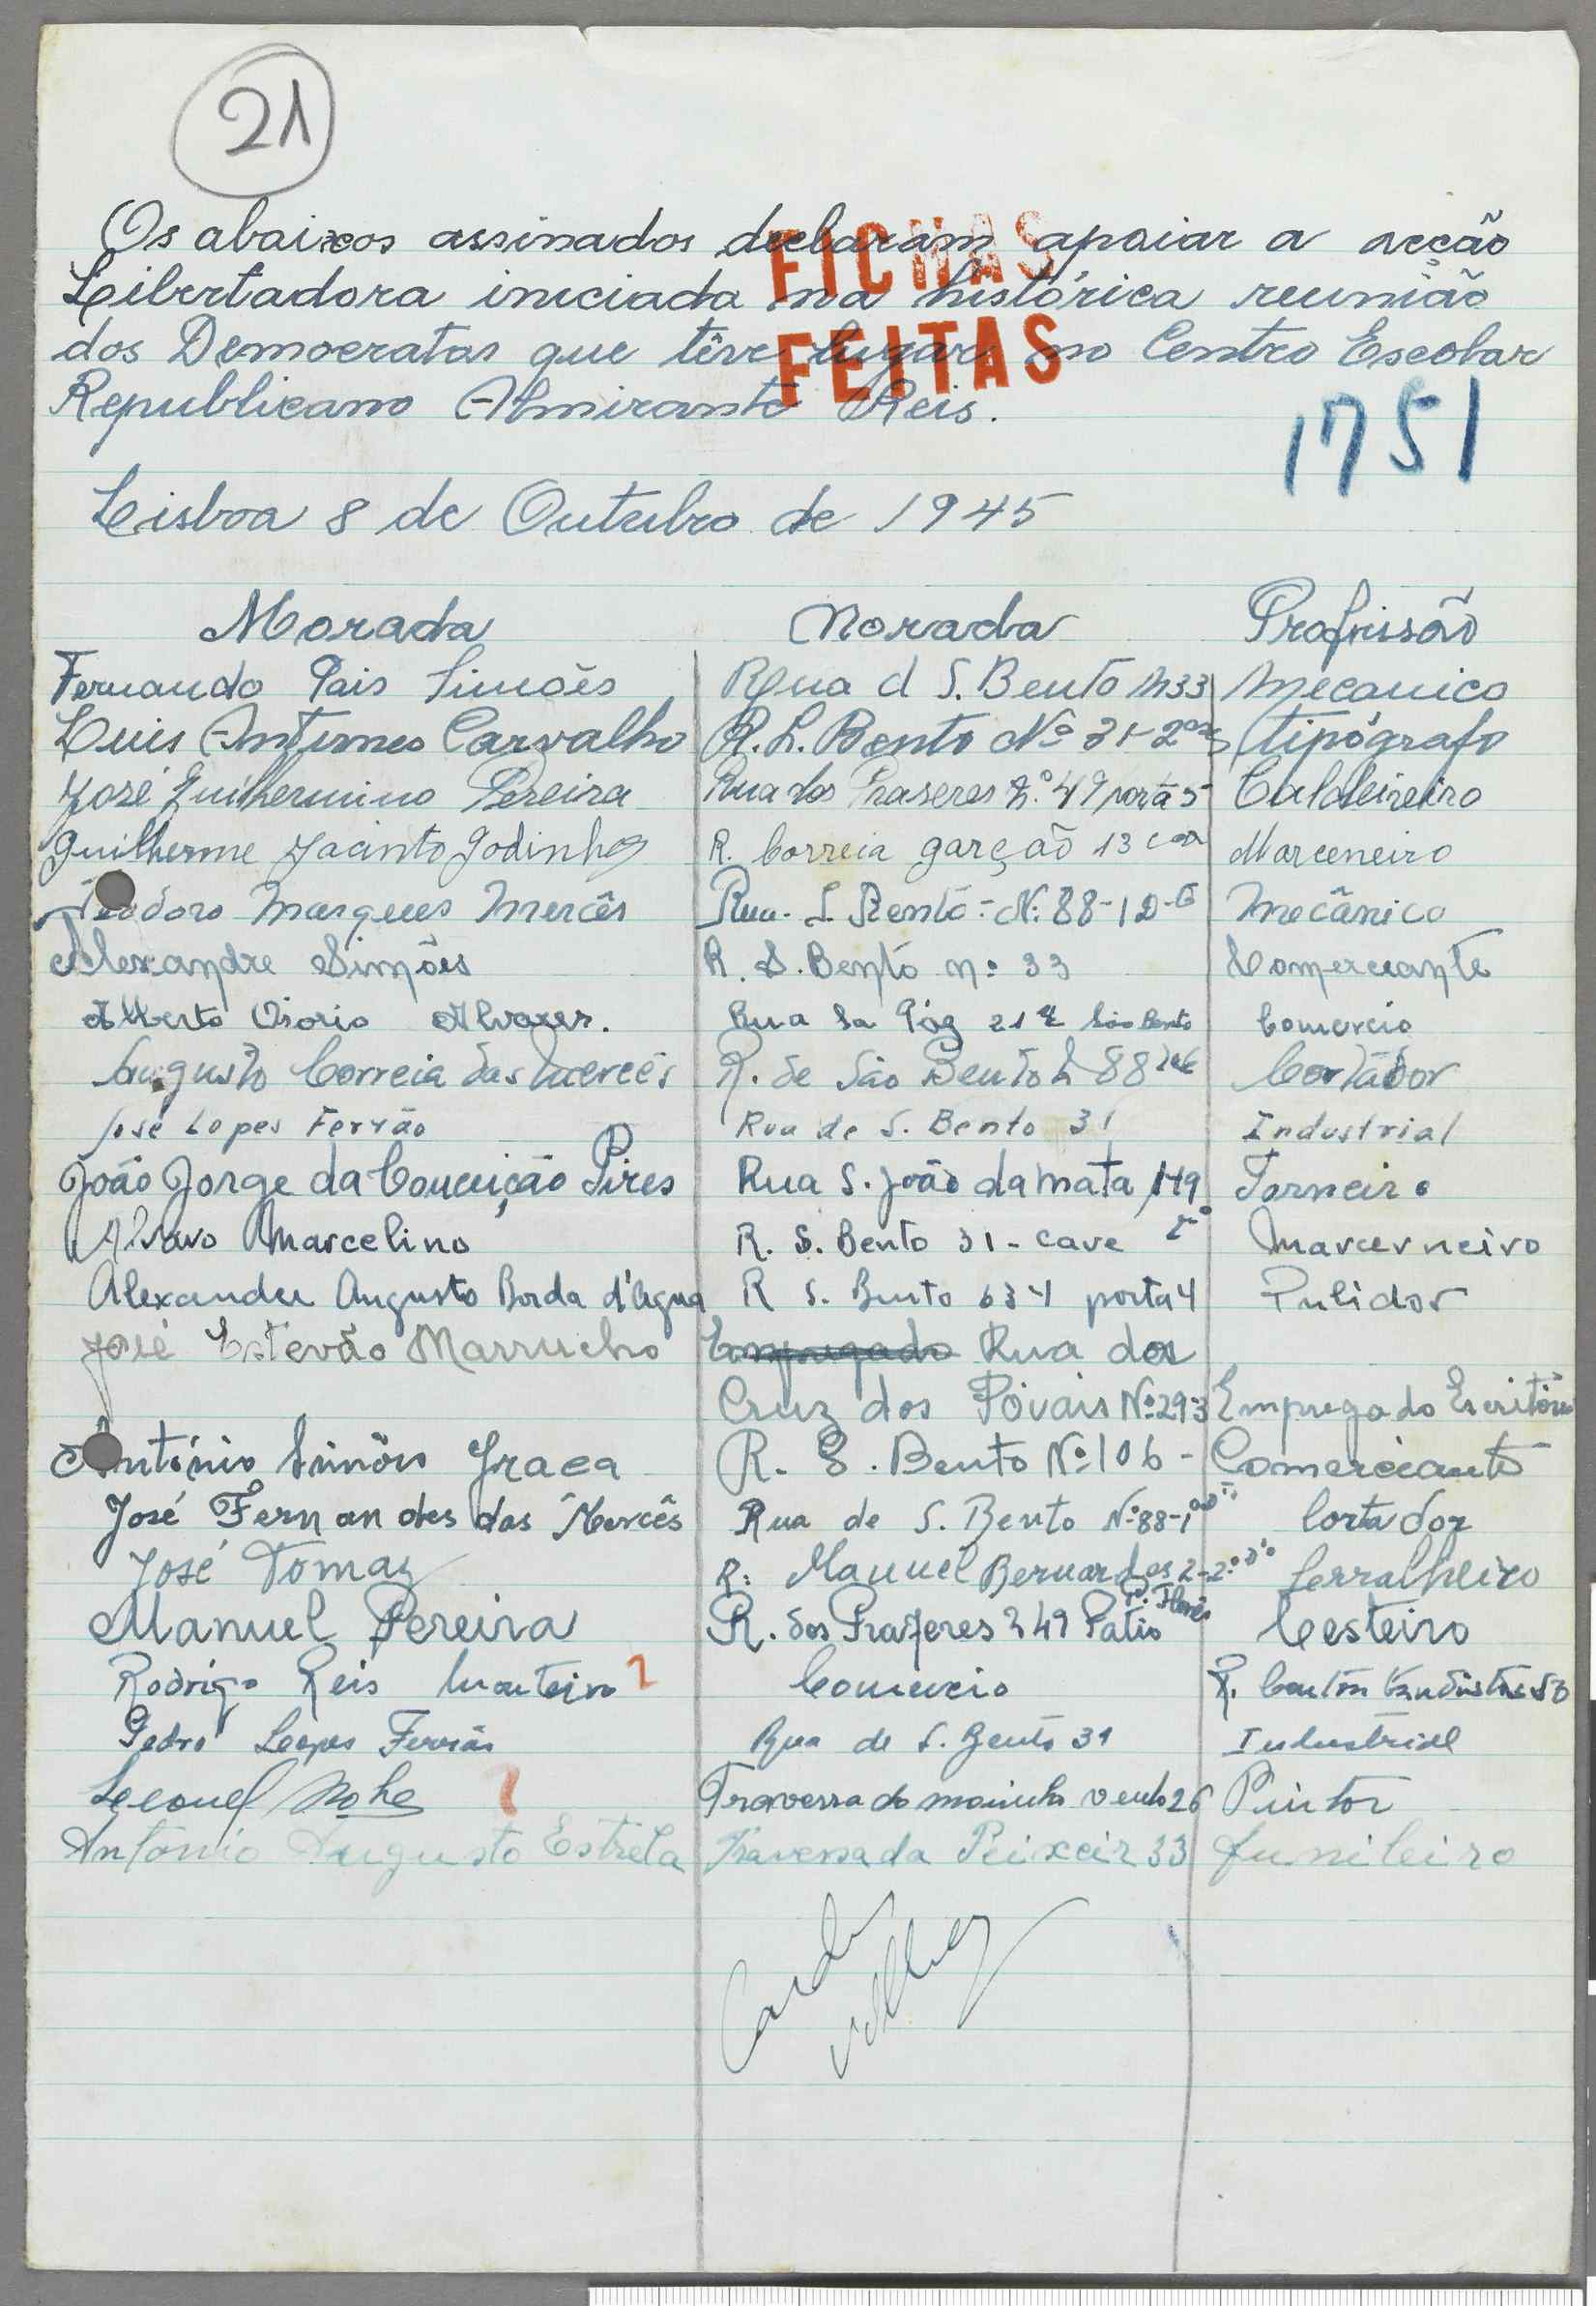 21
Os abaixos assinados declaram apoiar a acção
Libertadora iniciada na histórica reunião
dos Democratas que têve lugar no Centro Escolar
Republicano Almirante Reis.
FICHAS
FEITAS
1751
Lisboa 8 de Outubro de 1945
Morada Morada Profissão
Fernando Pais Simões Rua d S. Bento n33 Mecanico
Luis Antunes Carvalho R. S. Bento Nº 31-2º tipógrafo
José Guilhermino Pereira Rua dos Praseres N.º 49 porta 5 Caldeireiro
Guilherme Jacinto Godinho R. Correia garção 13 Marceneiro
Teodoro Marques Mercês Rua. S. Bento - Nº 88-1 D Mecânico
Alexandre Simões R. S. Bento nº 33 Comerciante
Alberto Osorio Alvares. Rua 21 São Bento Comercio
Augusto Correia das Mercês R. de São Bento 88 Cortador
José Lopes Ferrão Rua de S. Bento 31 Industrial
João Jorge da Conceição Pires Rua S. João da Mata 149 Torneiro
Alvaro Marcelino R. S. Bento 31 - cave Marcerneiro
Alexandre Augusto Borda d'Agua R S. Bento 634 porta 4 Pulidor
José Estevão Marrucho Empregado Rua dos
Cruz dos Poiais Nº 29-3 Empregado Escritório
António Simões Graça R. S. Bento Nº 106 - Comerciante
José Fernandes das Mercês Rua de S. Bento Nº 88-1º Cortador
José Tomaz R. Manuel Bernardes 2-2º Serralheiro
Manuel Pereira R. dos Prazeres 49 Patio Cesteiro
Rodrigo Reis Monteiro ? Comercio R.
Pedro Lopes Ferrão Rua de S. Bento 31 Industrial
Leonel ? Travessa do moinho vento 26 Pintor
António Augusto Estrela Travessa da Peixeir 33 funileiro